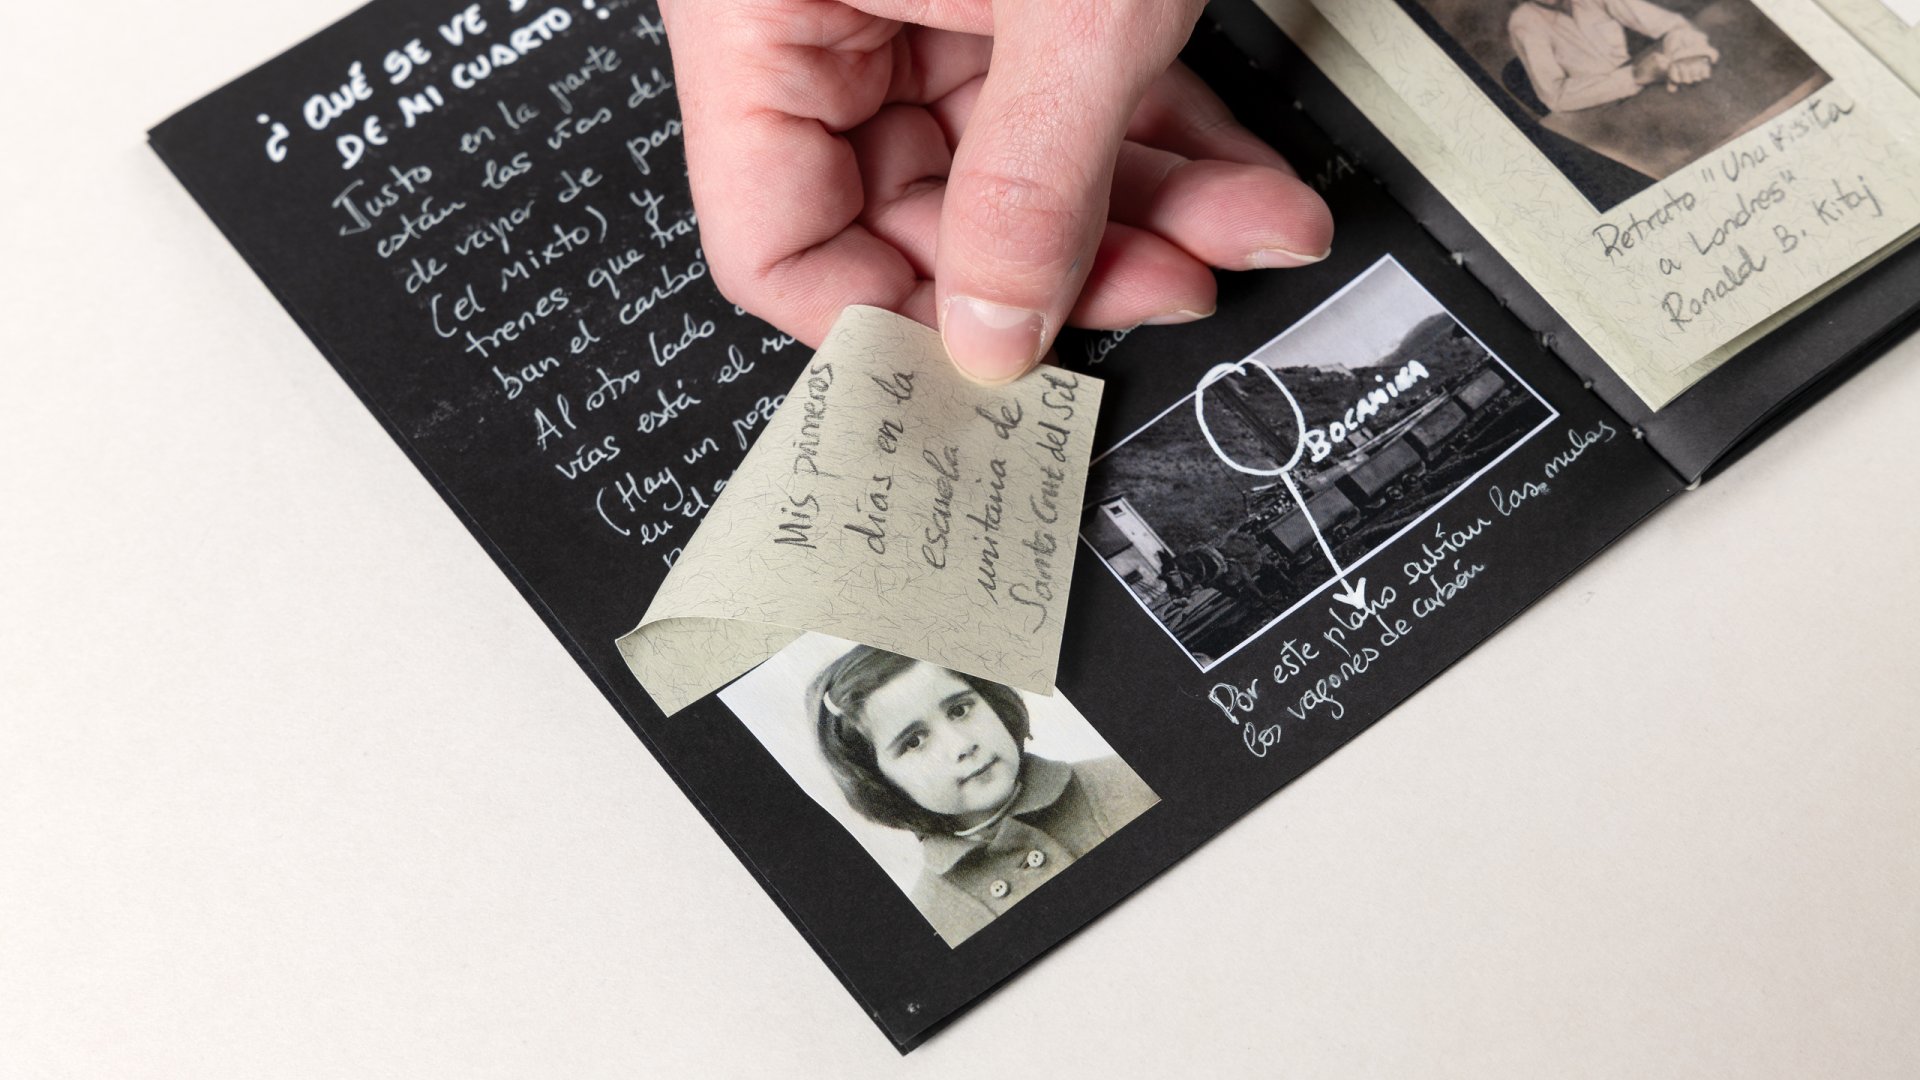 ¿QUÉ SE VE
DE MI CUARTO?
Justo en la parte
están las vías del
de vapor de
(el Mixto) y
trenes que
ban el
Al otro lado
vías está el
(Hay un pozo
en el
Mis primeros
días en la
escuela
unitaria de
Santa Cruz del Sil
BOCAMINA
Por este plano subían las mulas
los vagones de carbón
Retrato "Una Visita
a Londres"
Ronald B. Kitaj